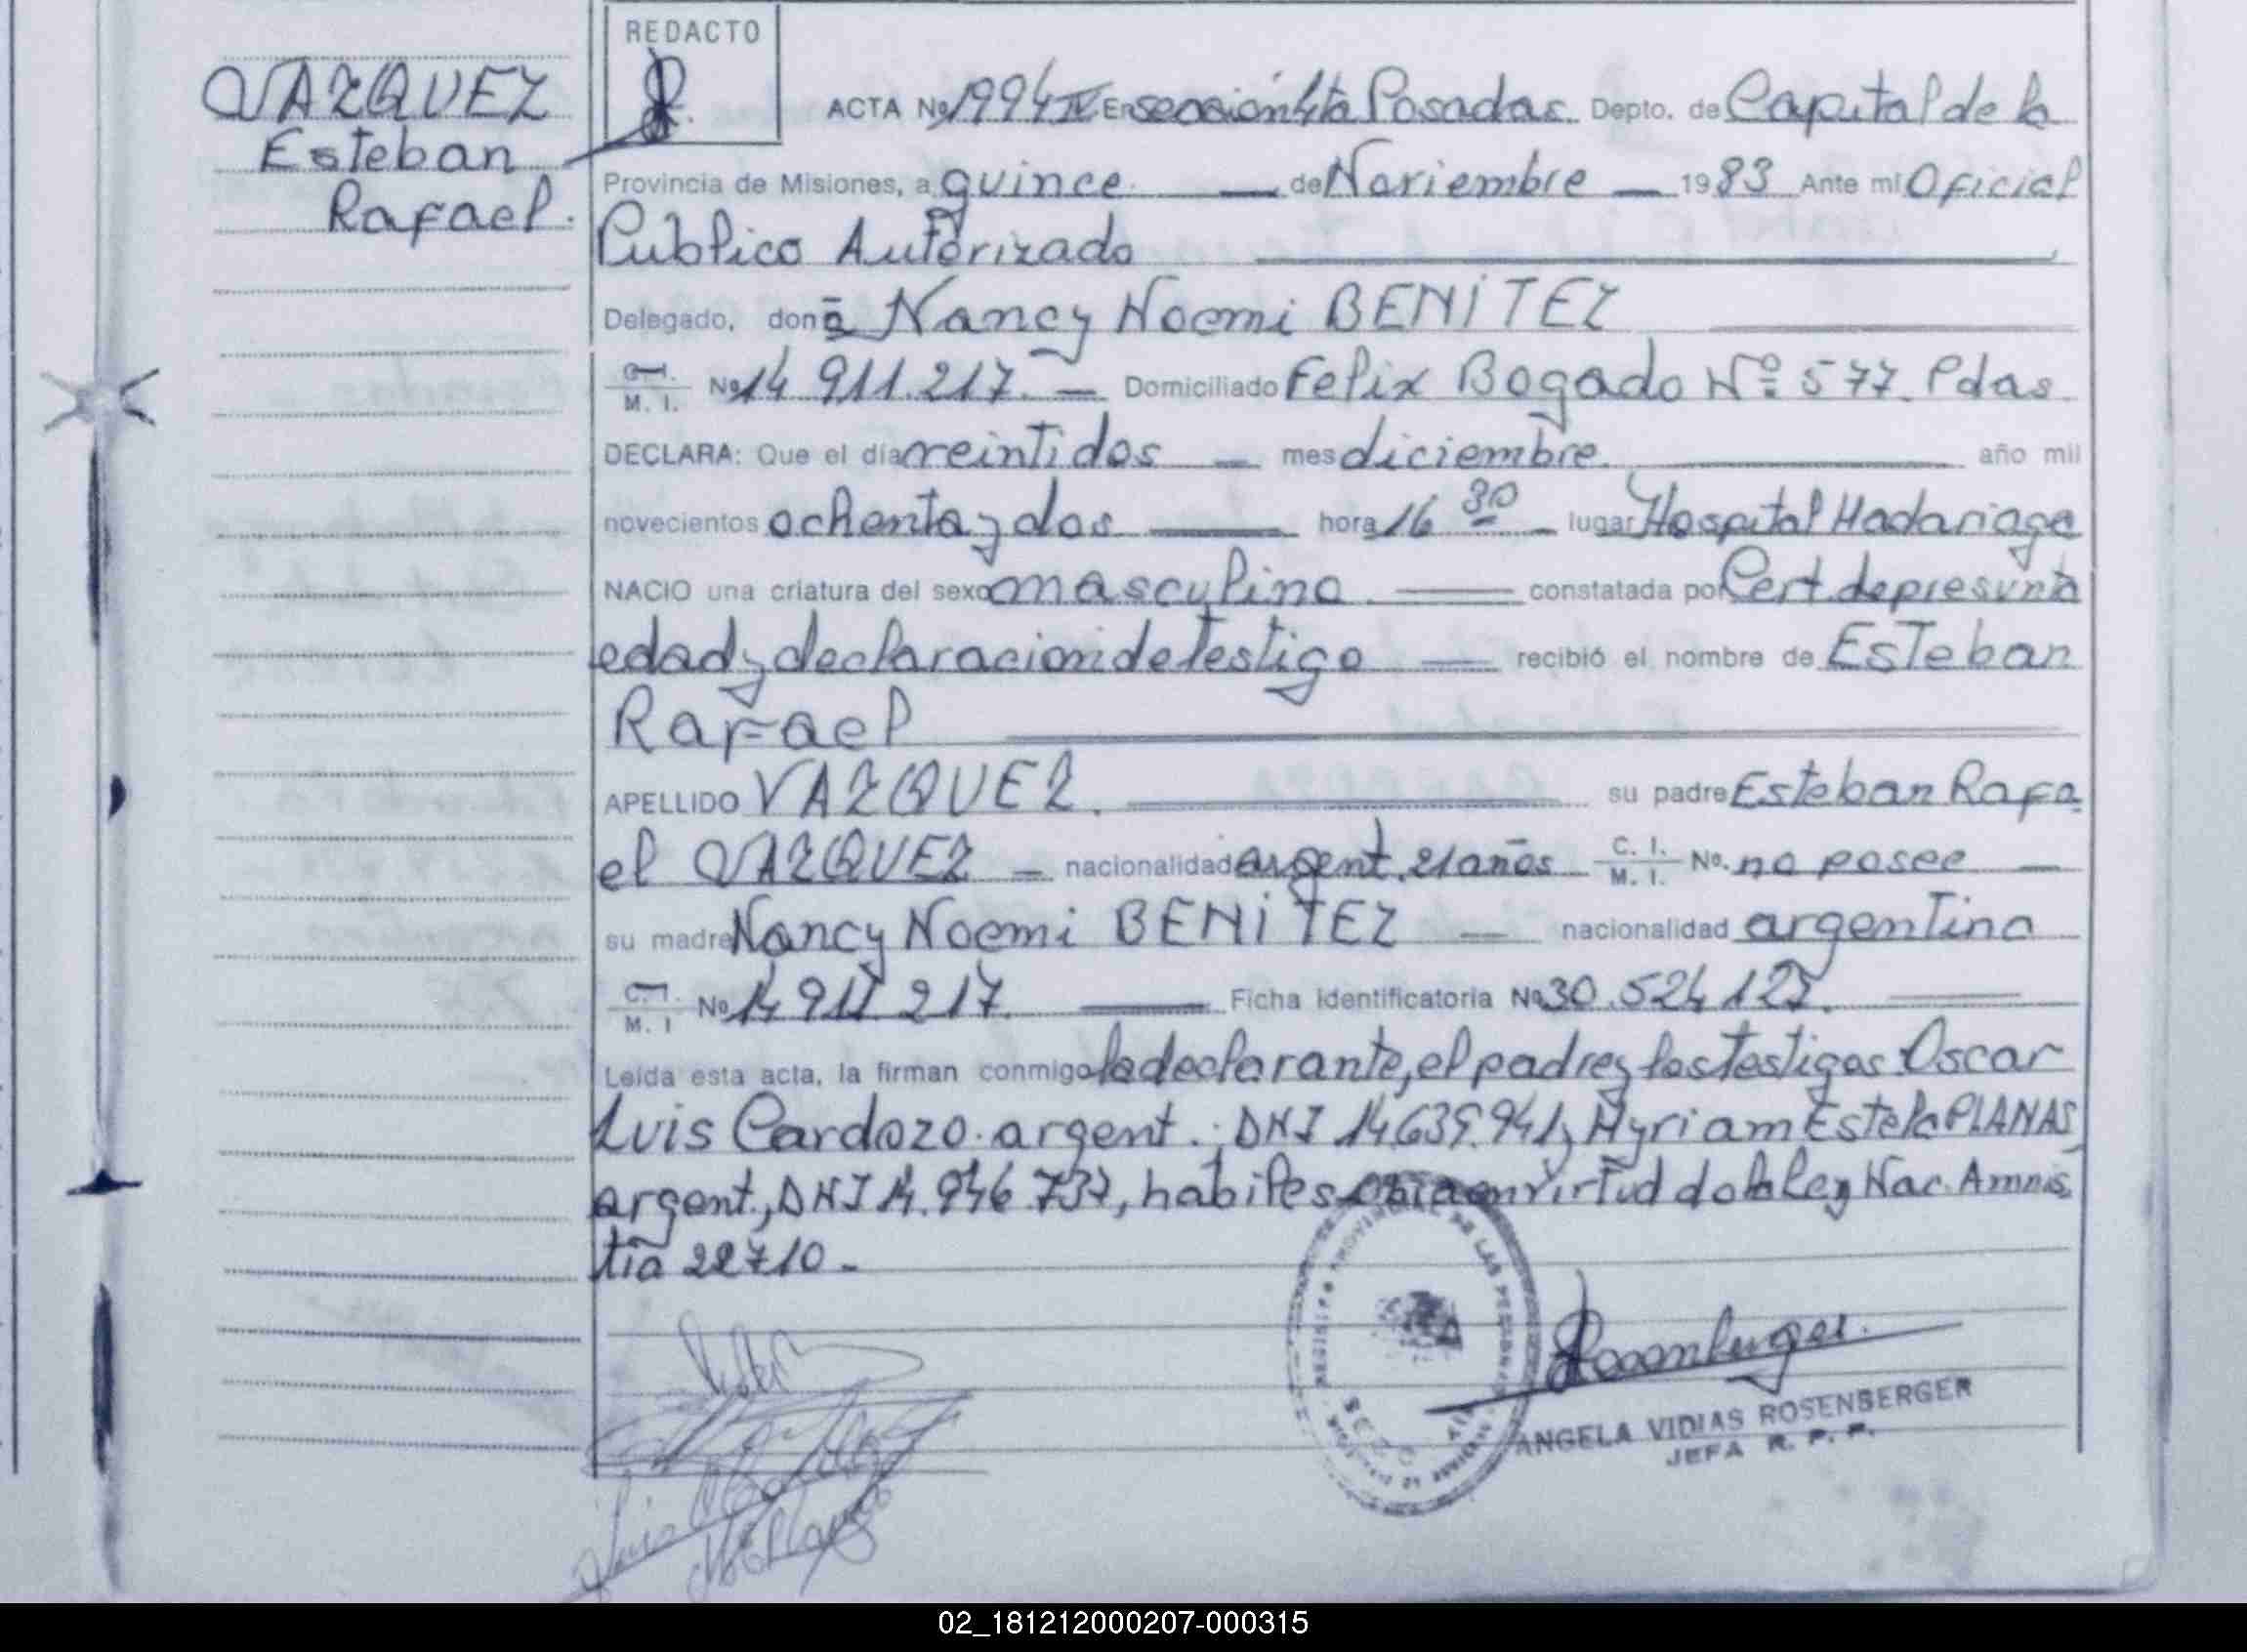 REDACTO
VAZQUEZ
Esteban
Rafael.
ACTA No 1994 IV En sección 4ta Posadas. Depto. de Capital de la
Provincia de Misiones, a quince — de Noviembre — 1983 Ante mi Oficial
Publico Autorizado
Delegado, doña Nancy Noemi BENITEZ
C. I. M. I. No 14 911.217. — Domiciliado Felix Bogado Nº 577. Pdas.
DECLARA: Que el día veintidos — mes diciembre. año mil
novecientos ochenta y dos — hora 16 30 — lugar Hospital Madariaga
NACIO una criatura del sexo masculino — constatada por Cert. de presunta
edad y declaracion de testigo — recibió el nombre de Esteban
Rafael
APELLIDO VAZQUEZ. su padre Esteban Rafa
el VAZQUEZ — nacionalidad argent. 21 años C. I. M. I. No. no posee —
su madre Nancy Noemi BENITEZ — nacionalidad argentina
C. I. M. I No 14 911 217. — Ficha identificatoria No 30.524 127.
Leída esta acta, la firman conmigo la declarante, el padre y los testigos Oscar
Luis Cardozo. argent. DNI 14.635.941 y Myriam Estela PLANAS
argent., DNI 14.946.737, habiles en virtud de la Ley Nac. Amnis
tia 22710.-
REGISTRO PROVINCIAL DE LAS PERSONAS
Rosenberger
ANGELA VIDIAS ROSENBERGER
JEFA R. P. P.
02_181212000207-000315